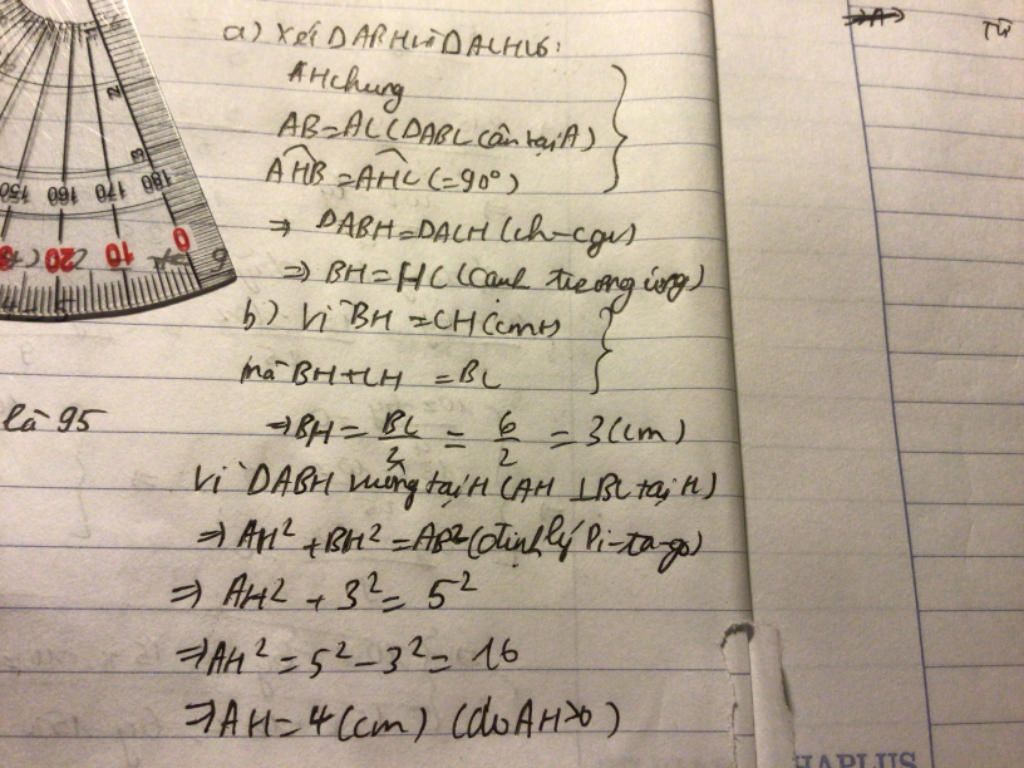 a) Xét ΔABH và ΔACH có:
AH chung
AB = AC (ΔABC cân tại A)
AHB = AHC (= 90°)
⇒ ΔABH = ΔACH (ch-cgv)
⇒ BH = HC (cạnh tương ứng)
b) Vì BH = CH (cmt)
mà BH + CH = BC
là 95
⇒ BH = BC/2 = 6/2 = 3 (cm)
Vì ΔABH vuông tại H (AH ⊥ BC tại H)
⇒ AH² + BH² = AB² (định lý Pi-ta-go)
⇒ AH² + 3² = 5²
⇒ AH² = 5² - 3² = 16
⇒ AH = 4 (cm) (do AH > 0)
Từ
2
3
150 160 170 180
20 10 0
6
HAPLUS